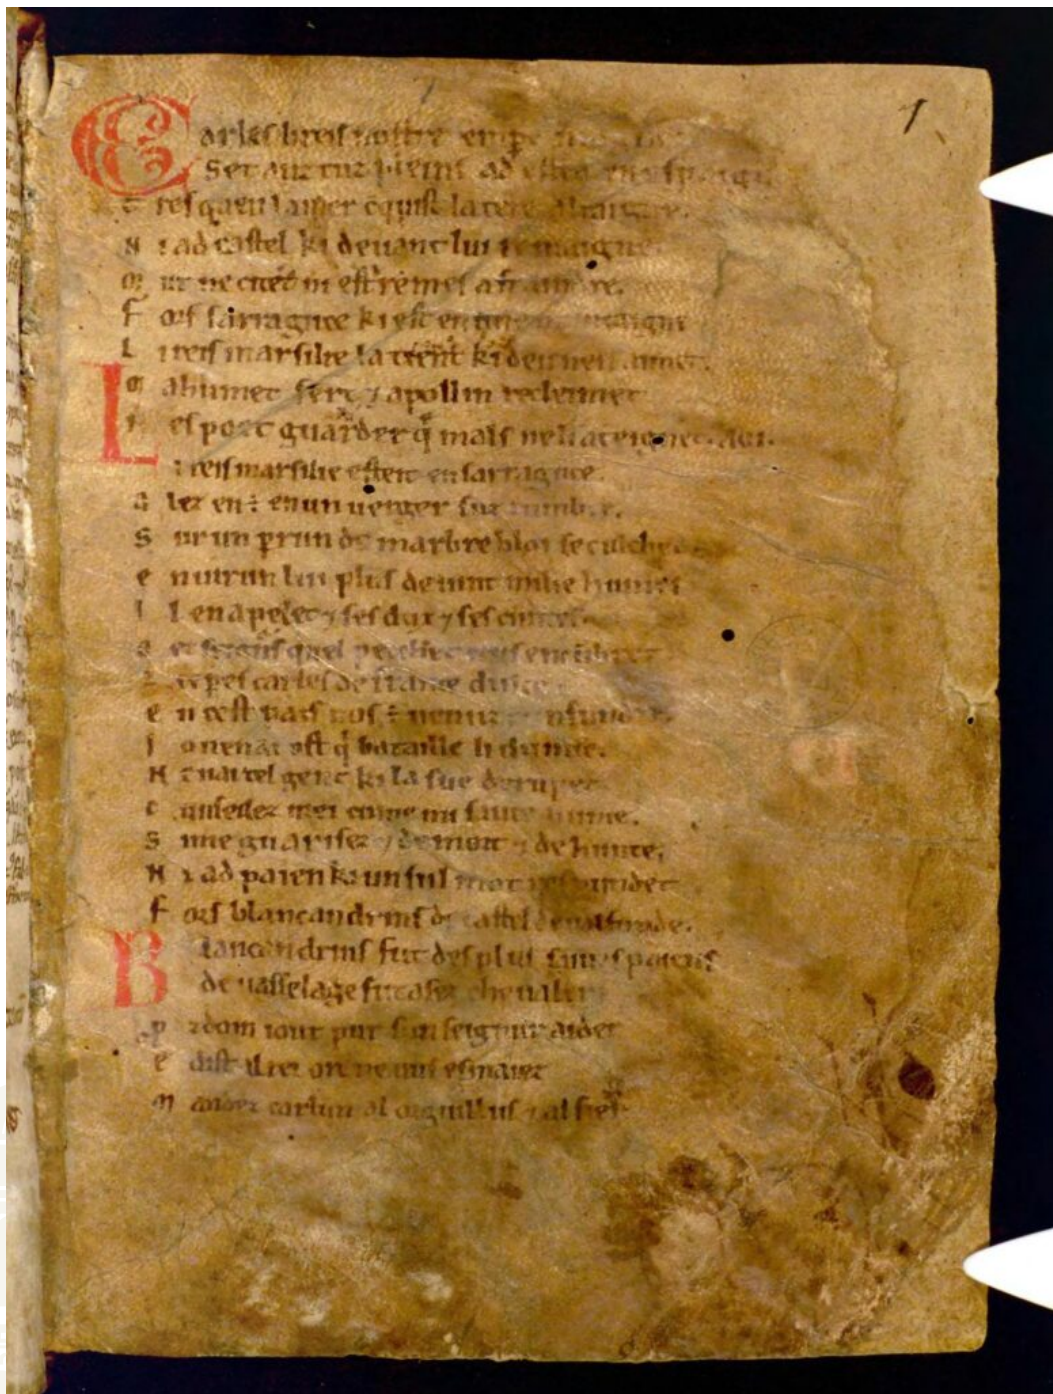 1
Carles li reis nostre empe
Set anz tuz pleins ad estet en espaigne
Tresqu en la mer cu̅quist la tere altaigne.
Ni ad castel ki deuant lui remaigne
Mur ne citet ni est remes a fraindre.
Fors sarraguce ki est en une muntaigne
Li reis marsilie la tient ki deu nen aimet.
Mahumet sert ⁊ apollin recleimet
Nes poet guarder q̅ mals ne li ateignet. aoi.
Li reis marsilie esteit en sarraguce.
Alez en ÷ en un uerger suz lumbre.
Sur un p̲run de marbre bloi se culchet
Enuirun lui plus de uint milie humes
Il en apelet ⁊ ses dux ⁊ ses cuntes
Oez seignurs quel pecchet nus encu̅bret
Li carles de france dulce
En cest pais nos ÷ uenuz cunfundre.
Jo nen ai ost q̅ bataille li dunne.
Ne nai tel gent ki la sue derumpet
Cunseilez mei cume mi saiue hume.
Si me guarisez ⁊ de mort ⁊ de hunte,
Ni ad paien ki un sul mot respundet
Fors blancandrins de castel de ualfunde.
Blancandrins fut des plus saiues paiens
de uasselage fut asez cheualer
Pzdom iout pur sun seignur aider
E dist al rei ore ne uus esmaiez
Mandez carlun al orguillus ⁊ al fier